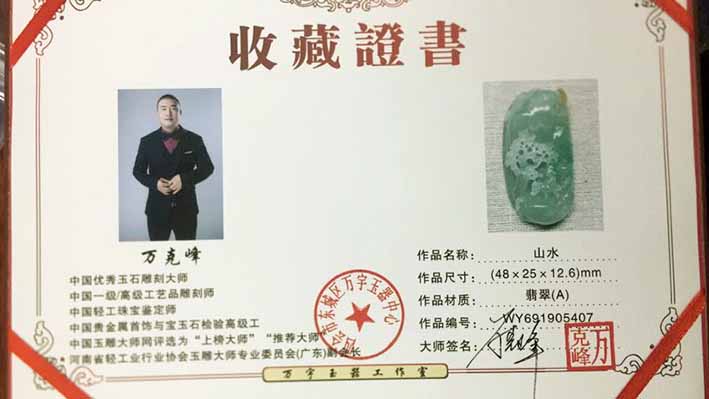 收藏證書
万克峰
中国优秀玉石雕刻大师
中国一级/高级工艺品雕刻师
中国轻工珠宝鉴定师
中国贵金属首饰与宝玉石检验高级工
中国玉雕大师网评选为“上榜大师”“推荐大师”
河南省轻工业行业协会玉雕大师专业委员会(广东)副会长
作品名称： 山水
作品尺寸： (48×25×12.6)mm
作品材质： 翡翠(A)
作品编号： WY691905407
大师签名：
会市东城区万字玉器中心
万克峰
万字玉器工作室